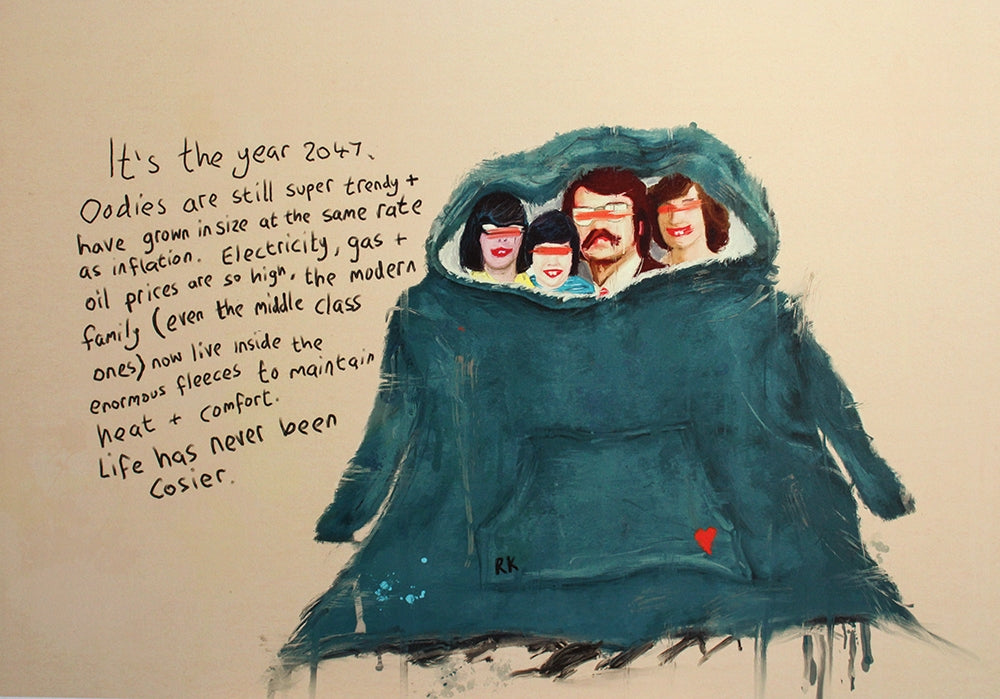 It's the year 2047.
Oodies are still super trendy +
have grown in size at the same rate
as inflation. Electricity, gas +
oil prices are so high, the modern
family (even the middle class
ones) now live inside the
enormous fleeces to maintain
heat + comfort.
Life has never been
Cosier.
RK